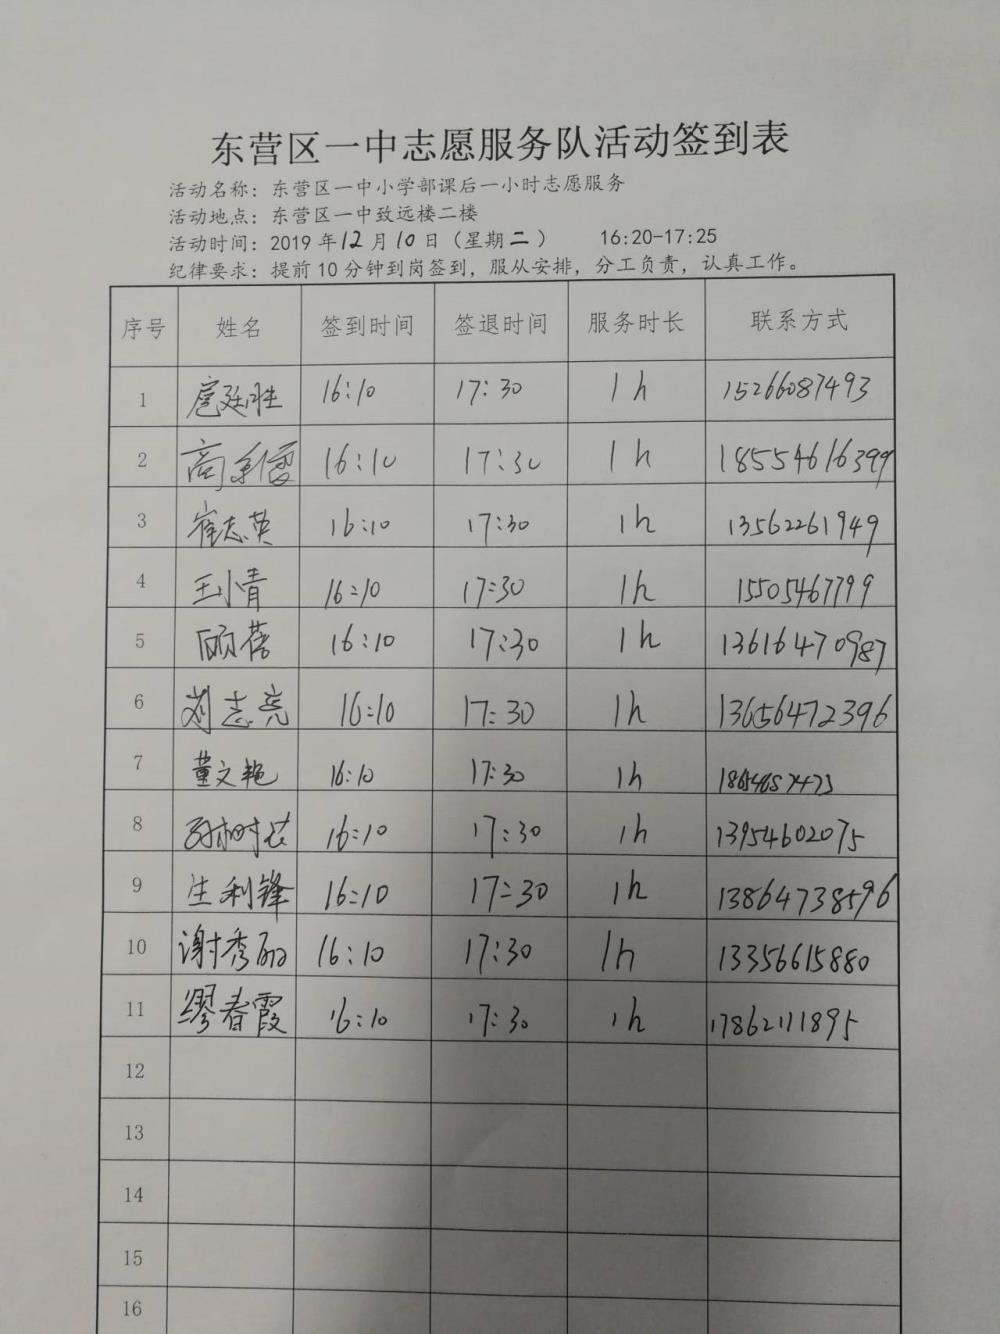 东营区一中志愿服务队活动签到表
活动名称：东营区一中小学部课后一小时志愿服务
活动地点：东营区一中致远楼二楼
活动时间：2019年12月10日（星期二） 16:20-17:25
纪律要求：提前10分钟到岗签到，服从安排，分工负责，认真工作。
序号 姓名 签到时间 签退时间 服务时长 联系方式
1 扈廷胜 16:10 17:30 1h 15266087493
2 商 16:10 17:30 1h 18554616399
3 崔志英 16:10 17:30 1h 13562261949
4 王小青 16:10 17:30 1h 15505467799
5 顾蓓 16:10 17:30 1h 13616470987
6 刘志亮 16:10 17:30 1h 13656472396
7 董文艳 16:10 17:30 1h
8 16:10 17:30 1h 13954602075
9 生利锋 16:10 17:30 1h 13864738596
10 谢秀丽 16:10 17:30 1h 13356615880
11 缪春霞 16:10 17:30 1h 17862111895
12
13
14
15
16